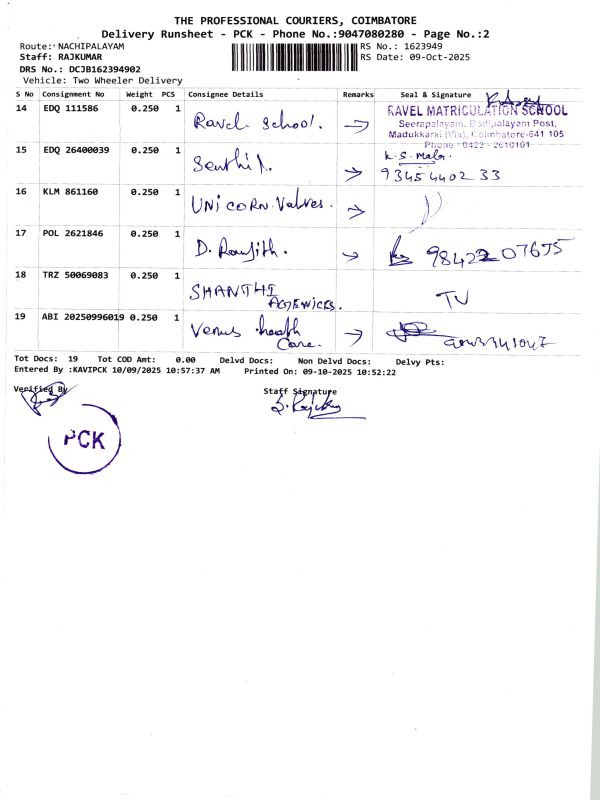 THE PROFESSIONAL COURIERS, COIMBATORE
Delivery Runsheet - PCK - Phone No.:9047080280 - Page No.:2
Route: NACHIPALAYAM RS No.: 1623949
Staff: RAJKUMAR RS Date: 09-Oct-2025
DRS No.: DCJB162394902
Vehicle: Two Wheeler Delivery
S No Consignment No Weight PCS Consignee Details Remarks Seal & Signature
14 EDQ 111586 0.250 1 Ravel School. RAVEL MATRICULATION SCHOOL
Seerapalayam, Bodipalayam Post,
Madukkarai (Via), Coimbatore-641 105
Phone : 0422 - 2610101
15 EDQ 26400039 0.250 1 Senthil. K. S. Mala.
93454402 33
16 KLM 861160 0.250 1 UNICORN Valves.
17 POL 2621846 0.250 1 D. Ranjith. 98422 07675
18 TRZ 50069083 0.250 1 SHANTHI
AGENCIES. TV
19 ABI 20250996019 0.250 1 Venus health
Care.
Tot Docs: 19 Tot COD Amt: 0.00 Delvd Docs: Non Delvd Docs: Delvy Pts:
Entered By :KAVIPCK 10/09/2025 10:57:37 AM Printed On: 09-10-2025 10:52:22
Verified By Staff Signature
PCK